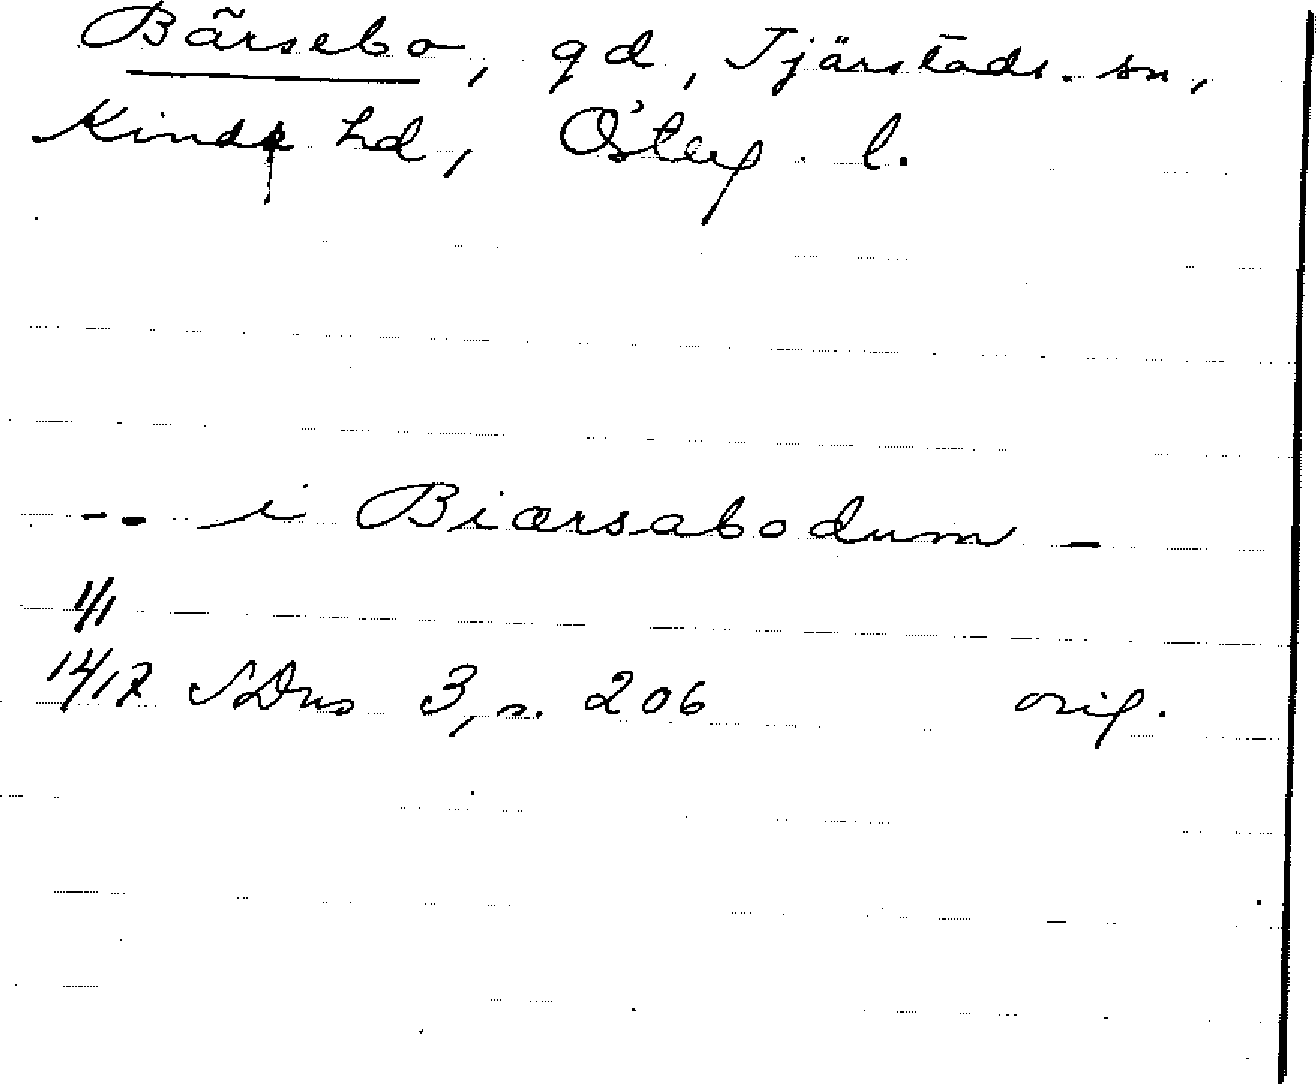 Bärsebo, gd, Tjärstads. sn,
Kinds hd, Österg. l.
-- i Biærsabodum -
1/1
1417 SDns 3, s. 206 orig.